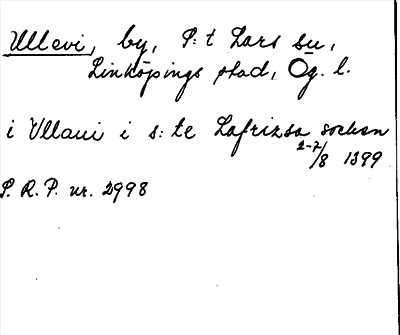 Ullevi, by, S:t Lars sn,
Linköpings stad, Ög. l.
i Vllaui i s:te Lafrizsa sockn
2-2/8 1399
S. R. P. nr. 2998